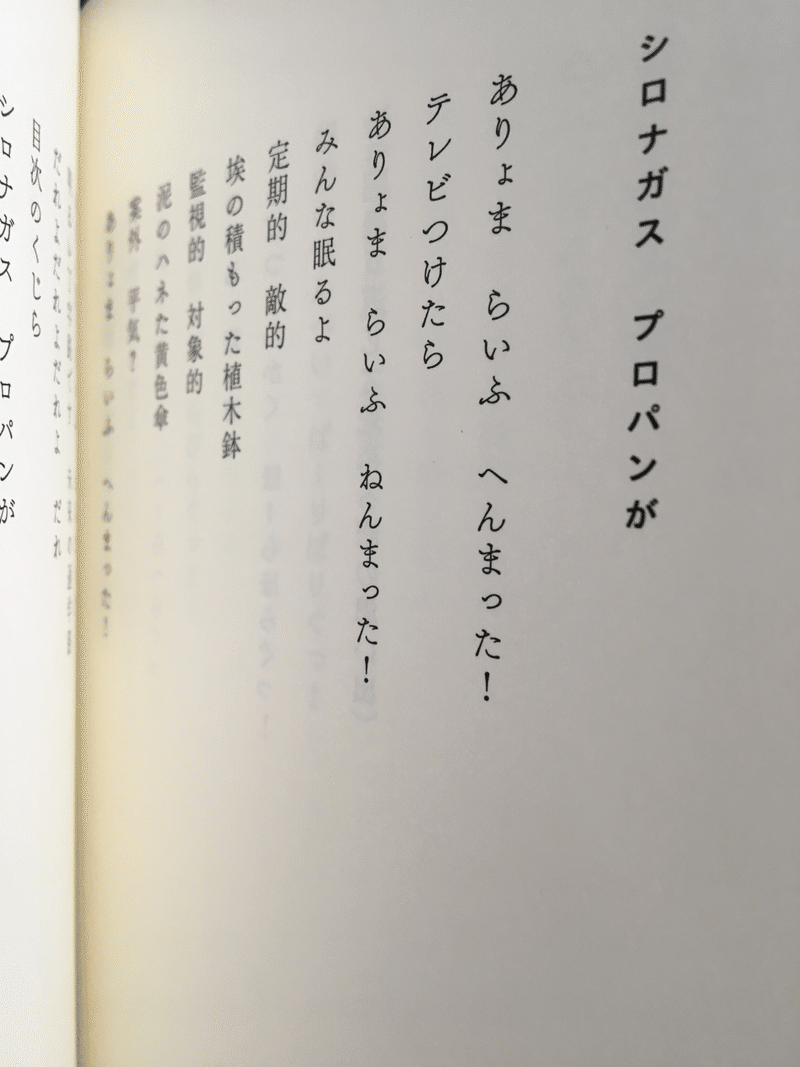 シロナガス　プロパンが
ありょま　らいふ　へんまった！
テレビつけたら
ありょま　らいふ　ねんまった！
みんな眠るよ
定期的　敵的
埃の積もった植木鉢
監視的　対象的
泥のハネた黄色傘
案外　平気？
ありょま　らいふ　へんまった！
だれよだれよだれよ　だれ
目次のくじら
シロナガス　プロパンが